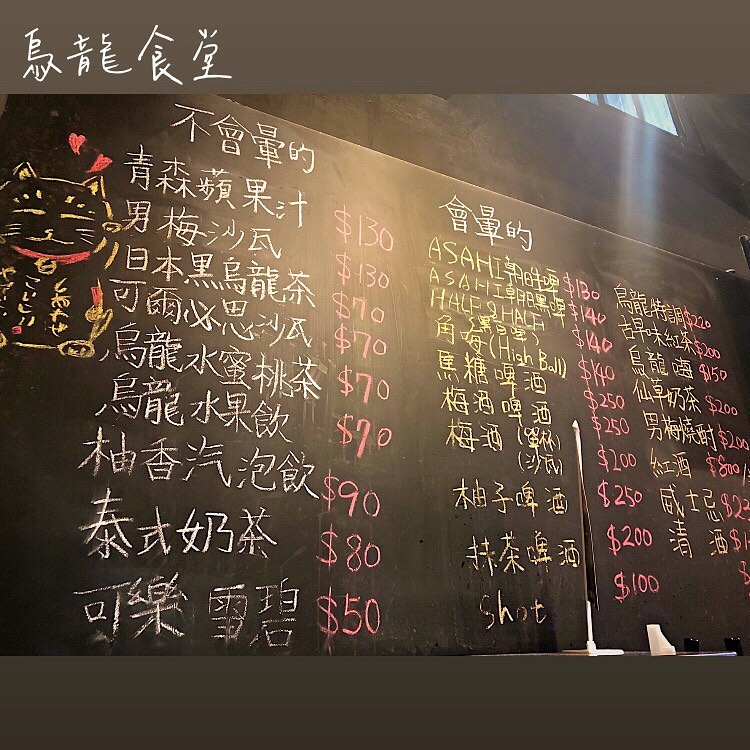 烏龍食堂
不會暈的
青森蘋果汁 $130
男梅沙瓦 $130
日本黑烏龍茶 $70
可爾必思沙瓦 $70
烏龍水蜜桃茶 $70
烏龍水果飲 $70
柚香汽泡飲 $90
泰式奶茶 $80
可樂 雪碧 $50
會暈的
ASAHI朝日啤 $130
ASAHI朝日黑啤 $140
HALF&HALF $140
角嗨(High Ball) $140
焦糖啤酒 $250
梅酒啤酒 $250
梅酒(單杯)
(沙瓦) $200
柚子啤酒 $250
抹茶啤酒 $200
Shot $100
烏龍特調 $220
古早味紅茶 $200
烏龍嗨 $150
仙草奶茶 $200
男梅燒酎 $200
紅酒 $800
威士忌
清酒